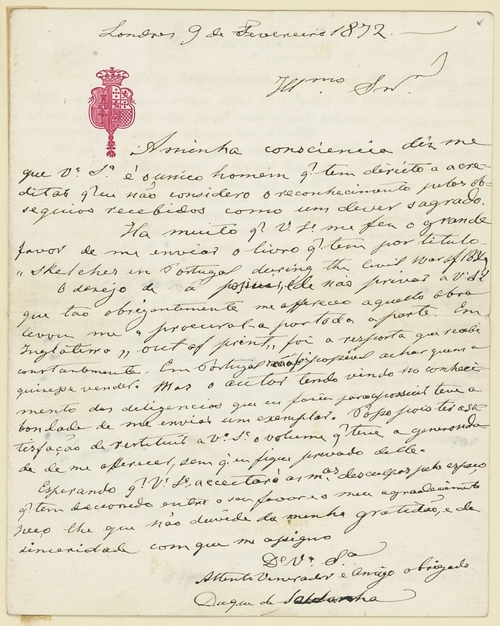 Londres 9 de Fevereiro 1872.
Illmo Snr.
A minha consciencia diz me
que Va. Sa. é o unico homem q' tem direito a acre-
ditar q' eu não considero o reconhecimento pelos ob-
sequios recebidos como um dever sagrado.
Ha muito q' V. Sa. me fez o grande
favor de me enviar o livro q' tem por titulo
"Sketches in Portugal during the Civil War of 1834
O desejo de a de não privar a V. Sa.
que tão obrigantemente me offereceo aquella obra
levou me a procural-a por toda a parte. Em
Inglaterra "out of print", foi a resposta que recebi
constantemente. Em Portugal não possivel achar quem a
quizesse vender. Mas o autor tendo vindo no conheci-
mento das diligencias que eu fazia para possuir teve a
bondade de me enviar um exemplar. Posso pois ter a sa-
tisfação de restituir a Va. Sa. o volume q' teve a generosida-
de de me offerecer, sem q' eu fique privado delle.
Esperando q' Va. Sa. acceitará as mas. desculpas pelo espaço
q' tem decorrido entre o seu favor e o meu agradecimento
peço lhe que não duvide da minha gratidão, e da
sinceridade com que me assigno
De Va. Sa.
Attento Venerador e Amigo obrigado
Duque de Saldanha